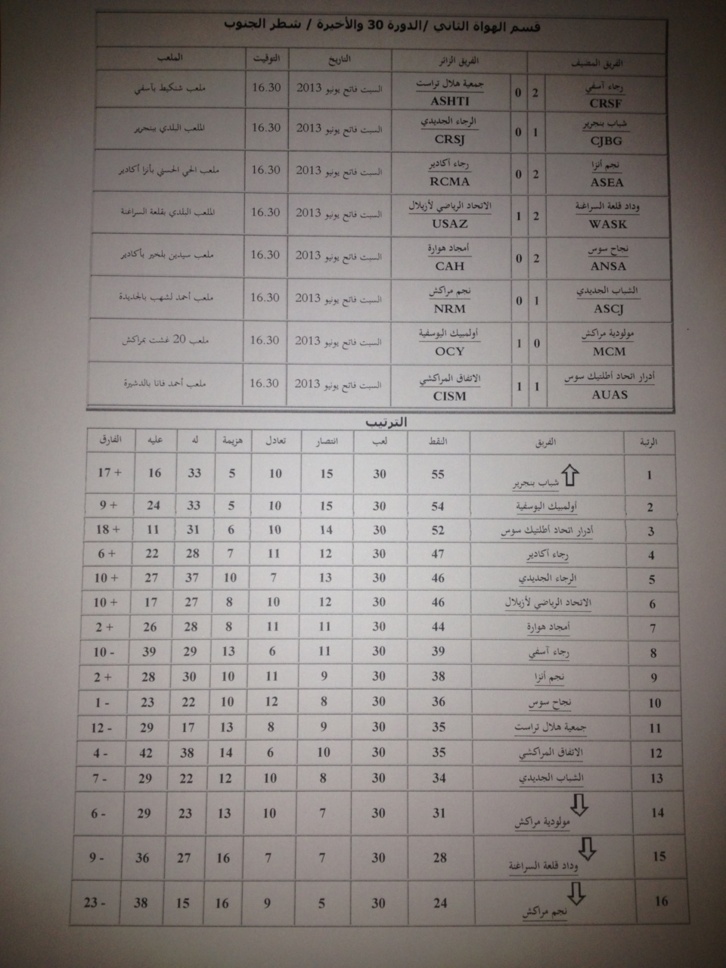 قسم الهواة الثاني /الدورة 30 والأخيرة / شطر الجنوب
الفريق المضيف الفريق الزائر التاريخ التوقيت الملعب
رجاء آسفي 2 0 جمعية هلال تراست السبت فاتح يونيو 2013 16.30 ملعب شنكيط بآسفي
CRSF ASHTI
شباب بنجرير 1 0 الرجاء الجديدي السبت فاتح يونيو 2013 16.30 الملعب البلدي ببنجرير
CJBG CRSJ
نجم أنزا 2 0 رجاء أكادير السبت فاتح يونيو 2013 16.30 ملعب الحي الحسني بأنزا أكادير
ASEA RCMA
وداد قلعة السراغنة 2 1 الاتحاد الرياضي لأزيلال السبت فاتح يونيو 2013 16.30 الملعب البلدي بقلعة السراغنة
WASK USAZ
نجاح سوس 2 0 أمجاد هوارة السبت فاتح يونيو 2013 16.30 ملعب سيدين بلخير بأكادير
ANSA CAH
الشباب الجديدي 1 0 نجم مراكش السبت فاتح يونيو 2013 16.30 ملعب أحمد لشهب بالجديدة
ASCJ NRM
مولودية مراكش 0 1 أولمبيك اليوسفية السبت فاتح يونيو 2013 16.30 ملعب 20 غشت بمراكش
MCM OCY
أدرار اتحاد أطلتيك سوس 1 1 الاتفاق المراكشي السبت فاتح يونيو 2013 16.30 ملعب أحمد فانا بالدشيرة
AUAS CISM
الترتيب
الرتبة الفريق النقط لعب انتصار تعادل هزيمة له عليه الفارق
1 شباب بنجرير 55 30 15 10 5 33 16 17 +
2 أولمبيك اليوسفية 54 30 15 10 5 33 24 9 +
3 أدرار اتحاد أطلتيك سوس 52 30 14 10 6 31 11 18 +
4 رجاء أكادير 47 30 12 11 7 28 22 6 +
5 الرجاء الجديدي 46 30 13 7 10 37 27 10 +
6 الاتحاد الرياضي لأزيلال 46 30 12 10 8 27 17 10 +
7 أمجاد هوارة 44 30 11 11 8 28 26 2 +
8 رجاء آسفي 39 30 11 6 13 29 39 10 -
9 نجم أنزا 38 30 9 11 10 30 28 2 +
10 نجاح سوس 36 30 8 12 10 22 23 1 -
11 جمعية هلال تراست 35 30 9 8 13 17 29 12 -
12 الاتفاق المراكشي 35 30 10 6 14 38 42 4 -
13 الشباب الجديدي 34 30 8 10 12 22 29 7 -
14 مولودية مراكش 31 30 7 10 13 23 29 6 -
15 وداد قلعة السراغنة 28 30 7 7 16 27 36 9 -
16 نجم مراكش 24 30 5 9 16 15 38 23 -